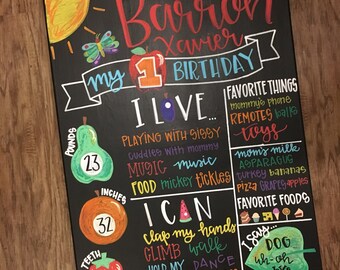 Barron
Xavier
my 1 BIRTHDAY
I LOVE...
PLAYING WITH SISSY
cuddles with mommy
MUSIC music
FOOD mickey tickles
FAVORITE THINGS
mommy's phone
REMOTES balls
toys
mom's milk
ASPARAGUS
turkey bananas
PIZZA GRAPES apples
FAVORITE FOODS
POUNDS
23
INCHES
32
TEETH
I CAN
clap my hands
CLIMB walk
HOLD MY DANCE
I say...
DOG
uh-oh